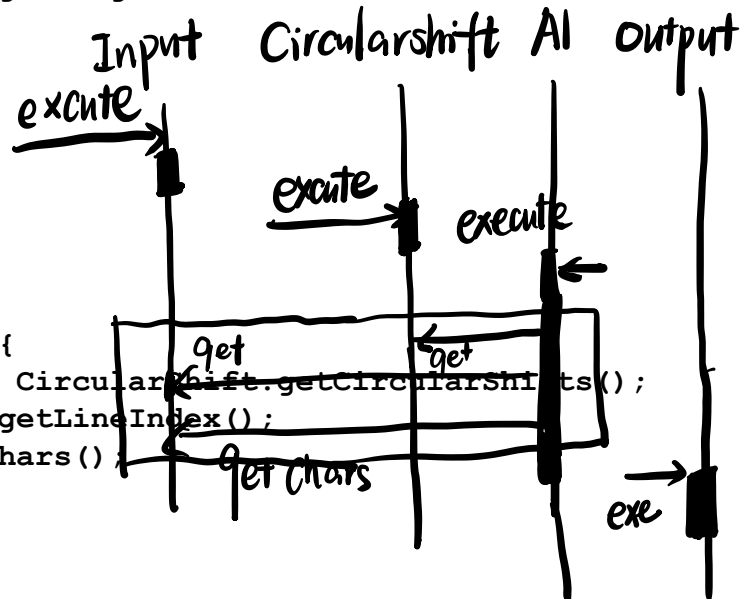 Input Circularshift Al Output
excute
excute
execute
{
get
get
CircularShift.getCircularShifts();
getLineIndex();
hars();
get chars
exe